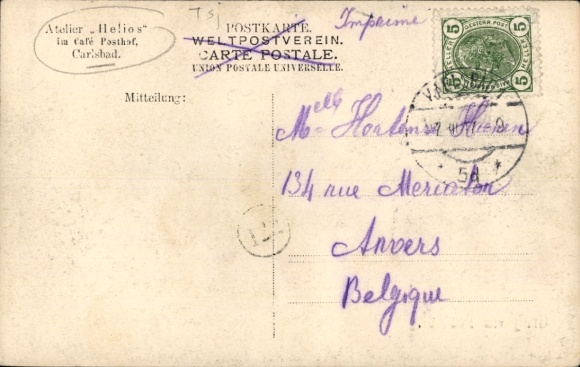 Atelier „Helios"
im Café Posthof,
Carlsbad.
Tsj
POSTKARTE.
WELTPOSTVEREIN.
CARTE POSTALE.
UNION POSTALE UNIVERSELLE.
Imprimé
5 5
5 5
Mitteilung:
Melle Hortense
134 rue Mercator
Anvers
Belgique
5d *